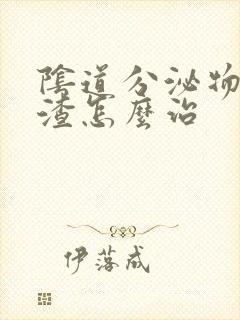 陰道分泌物
渣怎麼治
伊落成